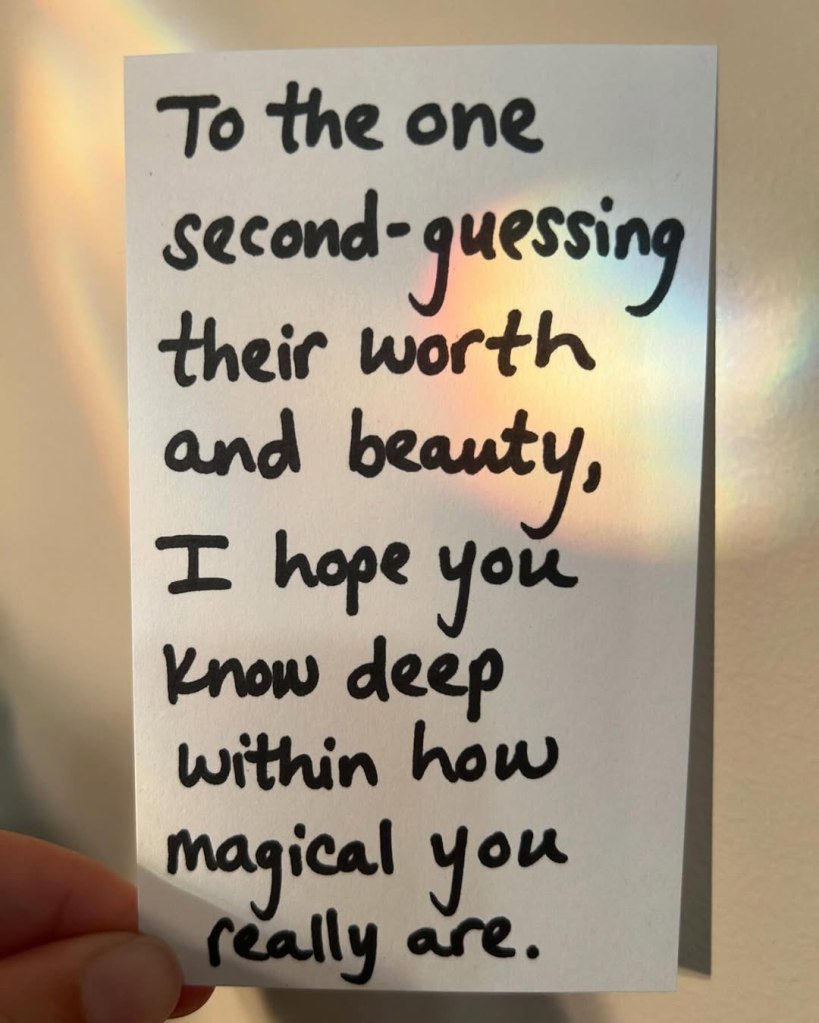 To the one
second-guessing
their worth
and beauty,
I hope you
know deep
within how
magical you
really are.